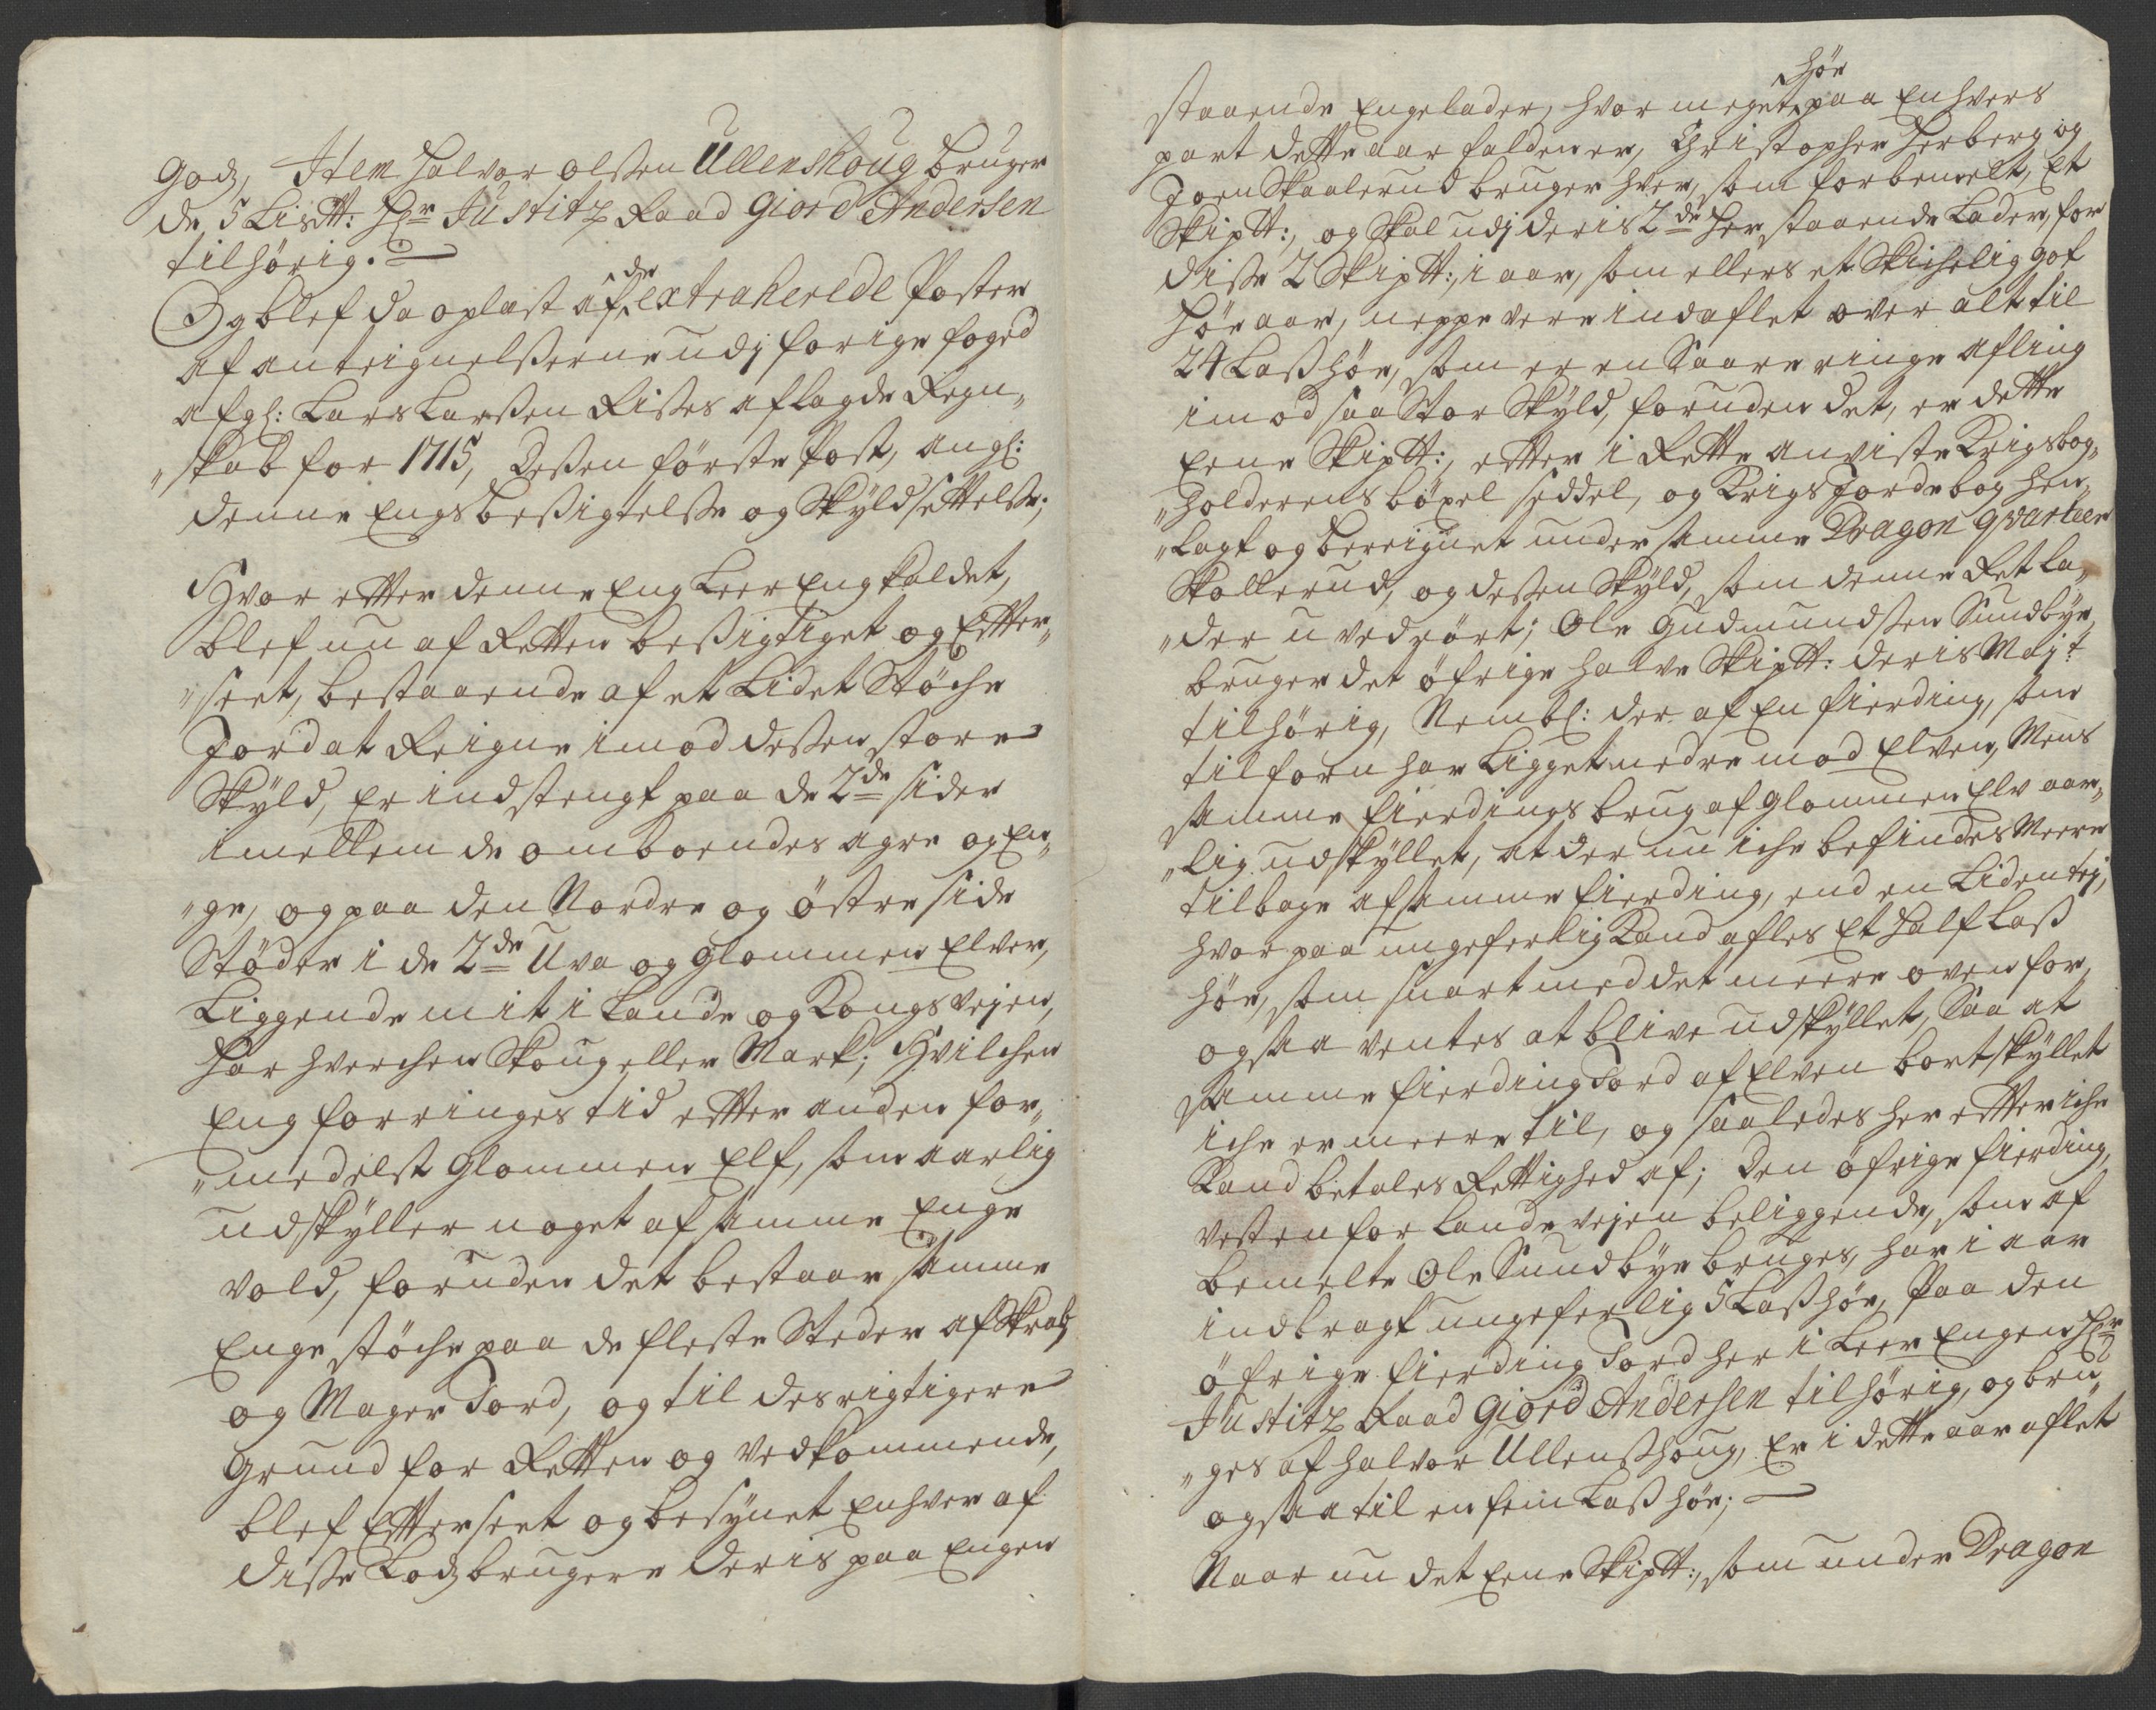 godz, Item Halvor olssen Ullenshoug bruger
de 5 Lispd: Hr Justitz Raad Giord Andersen
tilhörig.
Og blef da oplæst af de extraherede Poster
af antegnelsserne udj forige foged
afg: Lars Larssen Risses aflagde Regn„
„skab for 1715, Dessen förste Post, angl:
denne Engs besigtelsse og Skyldsettelsse;
Hvor efter denne Eng Leer Eng kaldet,
blef nu af Retten besigtiget og Efter„
„seet, bestaaende af et Lidet Støche
Jord at Reigne imod dessen store
Skyld, Er indstengt paa de 2de sider
imellem de omboendes agre og En„
„ge, og paa den Nordre og østre side
Støder i de 2de Uva og Glommen Elver,
Liggende mit i Lande og Kongs vejen,
har hverchen Skoug eller Mark; Hvilchen
Eng forringes tid efter anden for„
„medelst Glommen Elf, som aarlig
udskyller noget af samme Enge
vold, foruden det bestaar samme
Enge støche paa de fleste Steder af Skrab
og Mager Jord, og til des rigtigere
Grund for Retten og vedkommende,
blef Efterseet og besynet Enhver af
disse Lodz brugere deris paa Engen
staaende Engelader, hvor meget höe paa Enhvers
part dette aar falden er, Christopher Herberg og
Joen Skaalerud bruger hver, som forbemelt, Et
Skipd:, og Skal udj deris 2de her staaende Lader, for
disse 2 Skipd:, i aar, som ellers et Skichelig got
höe aar, neppe vere indaflet over alt til
24 Lass höe, som er en Saare ringe afling
imod saa Stor Skyld, foruden det, er dette
Eene Skipd:, efter i Rette anviste Krigsbog„
„holderens böxel seddel, og Krigs Jordebog hen„
„lagt og bereignet under samme Dragon qvarteer
Skollerud, og dessen Skyld, som denne Ret la„
„der uvedrört; Ole Gudmundssen Sundbye,
bruger det öfrige halve Skipd: deris Majt
tilhörig, Nembl: der af En fierding, som
tilforn har Ligget nedre mod Elven, Mens
samme fierdings brug af Glommen Elv aar„
„lig udskyllet, at der nu iche befindes Meere
tilbage af samme fierding, end en Liden tej,
hvor paa ungeferlig Kand afles Et half Lass
höe, som snart med det meere oven for,
ogsaa ventes at blive udskyllet, Saa at
samme fierding Jord af Elven bortskyllet
iche er meere til, og saaledes her efter iche
Kand betales Rettighed af; Den öfrige fierding,
vesten for Lande vejen beliggende, som af
bemelte Ole Sundbye bruges, har i aar
indbragt ungeferlig 5 Lass höe, Paa den
öfrige fierding Jord her i Leer Engen Hr
Justitz Raad Giord Andersen tilhörig, og bru„
„ges af Halvor Ullenshoug, Er i dette aar aflet
ogsaa til en fem Lass höe;
Naar nu det Eene Skipd:, som under Dragon